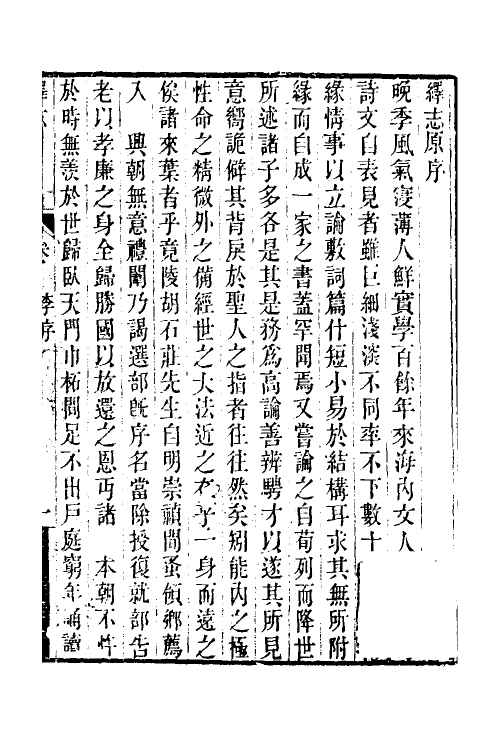 繹志原序
晚季風氣寖薄人鮮實學百餘年來海內文人
詩文自表見者雖巨細淺深不同率不下數十
緣情事以立論敷詞篇什短小易於結構耳求其無所附
緣而自成一家之書蓋罕聞焉又嘗論之自荀列而降世
所述諸子多各是其是務爲高論善辨騁才以遂其所見
意嚮詭僻其背戾於聖人之指者往往然矣矧能內之極
性命之精微外之備經世之大法近之存乎一身而遠之
俟諸來葉者乎竟陵胡石莊先生自明崇禎間蚤領鄉薦
入 興朝無意禮闈乃謁選部旣序名當除授復就部告
老以孝廉之身全歸勝國以放還之恩丐諸 本朝不忤
於時無羨於世歸臥天門巾柘間足不出戶庭窮年誦讀
李序
一